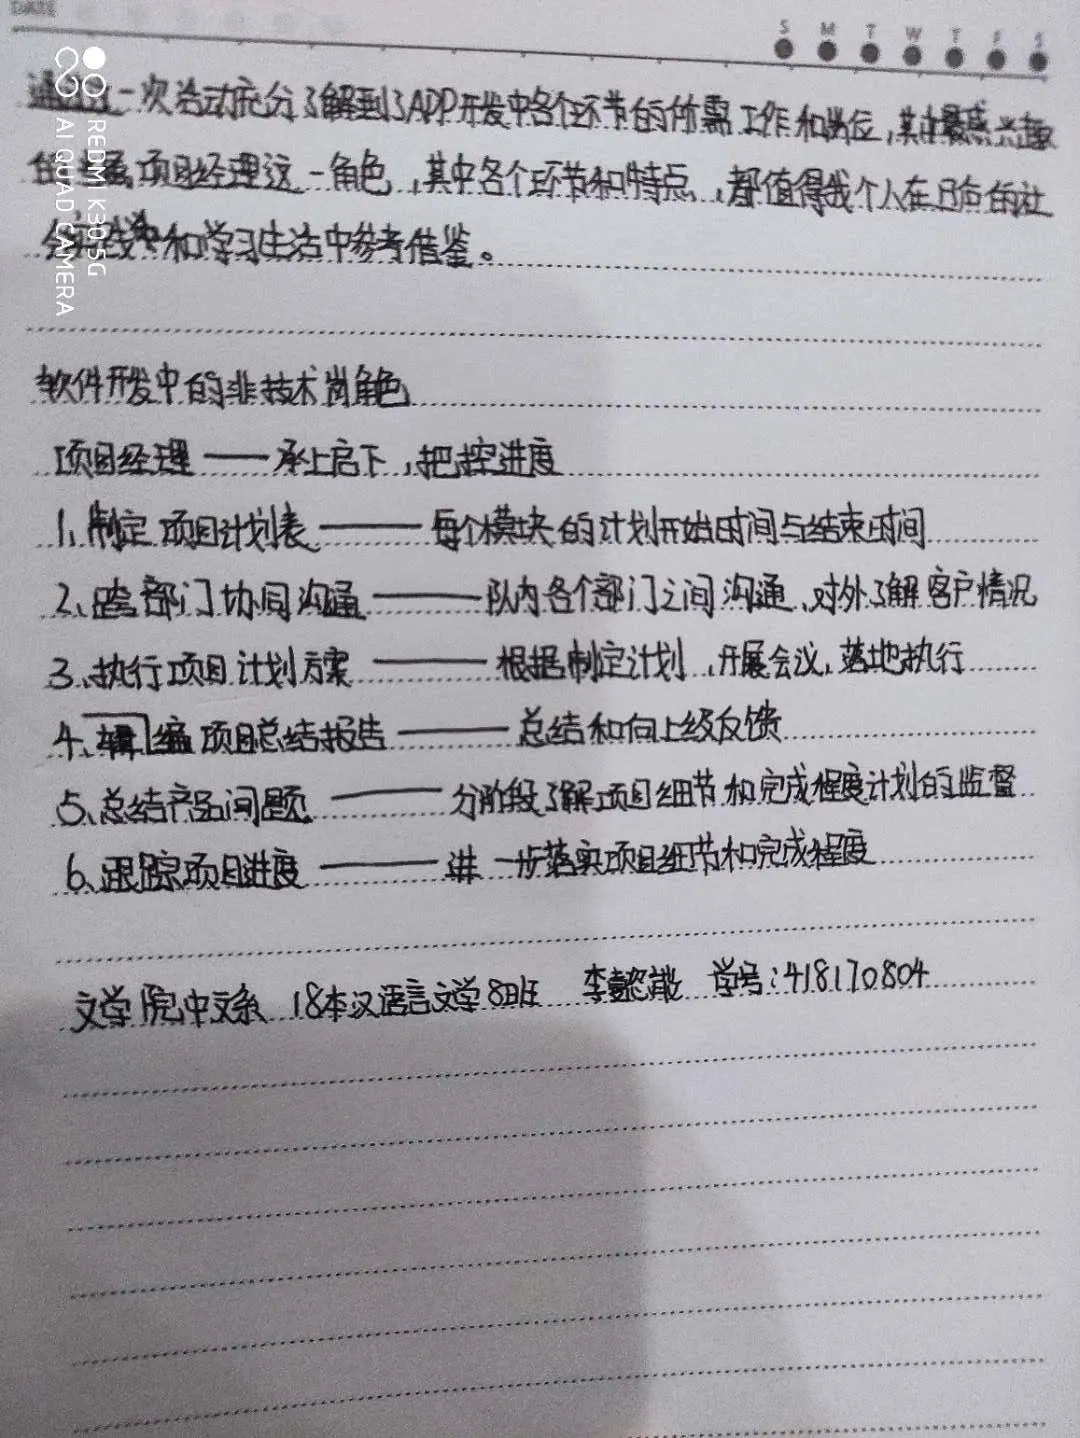 DATE
S M T W T F S
通过这一次活动充分了解到了APP开发中各个环节的所需工作和岗位,其中最感兴趣
的是项目经理这一角色,其中各个环节和特点,都值得我个人在日后的社
会实践中和学习生活中参考借鉴。
软件开发中的非技术岗角色
项目经理——承上启下,把控进度
1、制定项目计划表——每个模块的计划开始时间与结束时间
2、跨部门协同沟通——队内各个部门之间沟通、对外了解客户情况
3、执行项目计划方案——根据制定计划,开展会议,落地执行
4、编辑项目总结报告——总结和向上级反馈
5、总结产品问题——分阶段了解项目细节和完成程度计划的监督
6、跟踪项目进度——进一步落实项目细节和完成程度
文学院中文系 18本汉语言文学8班 李懿 学号:418170804
REDMI K30 5G
AI QUAD CAMERA